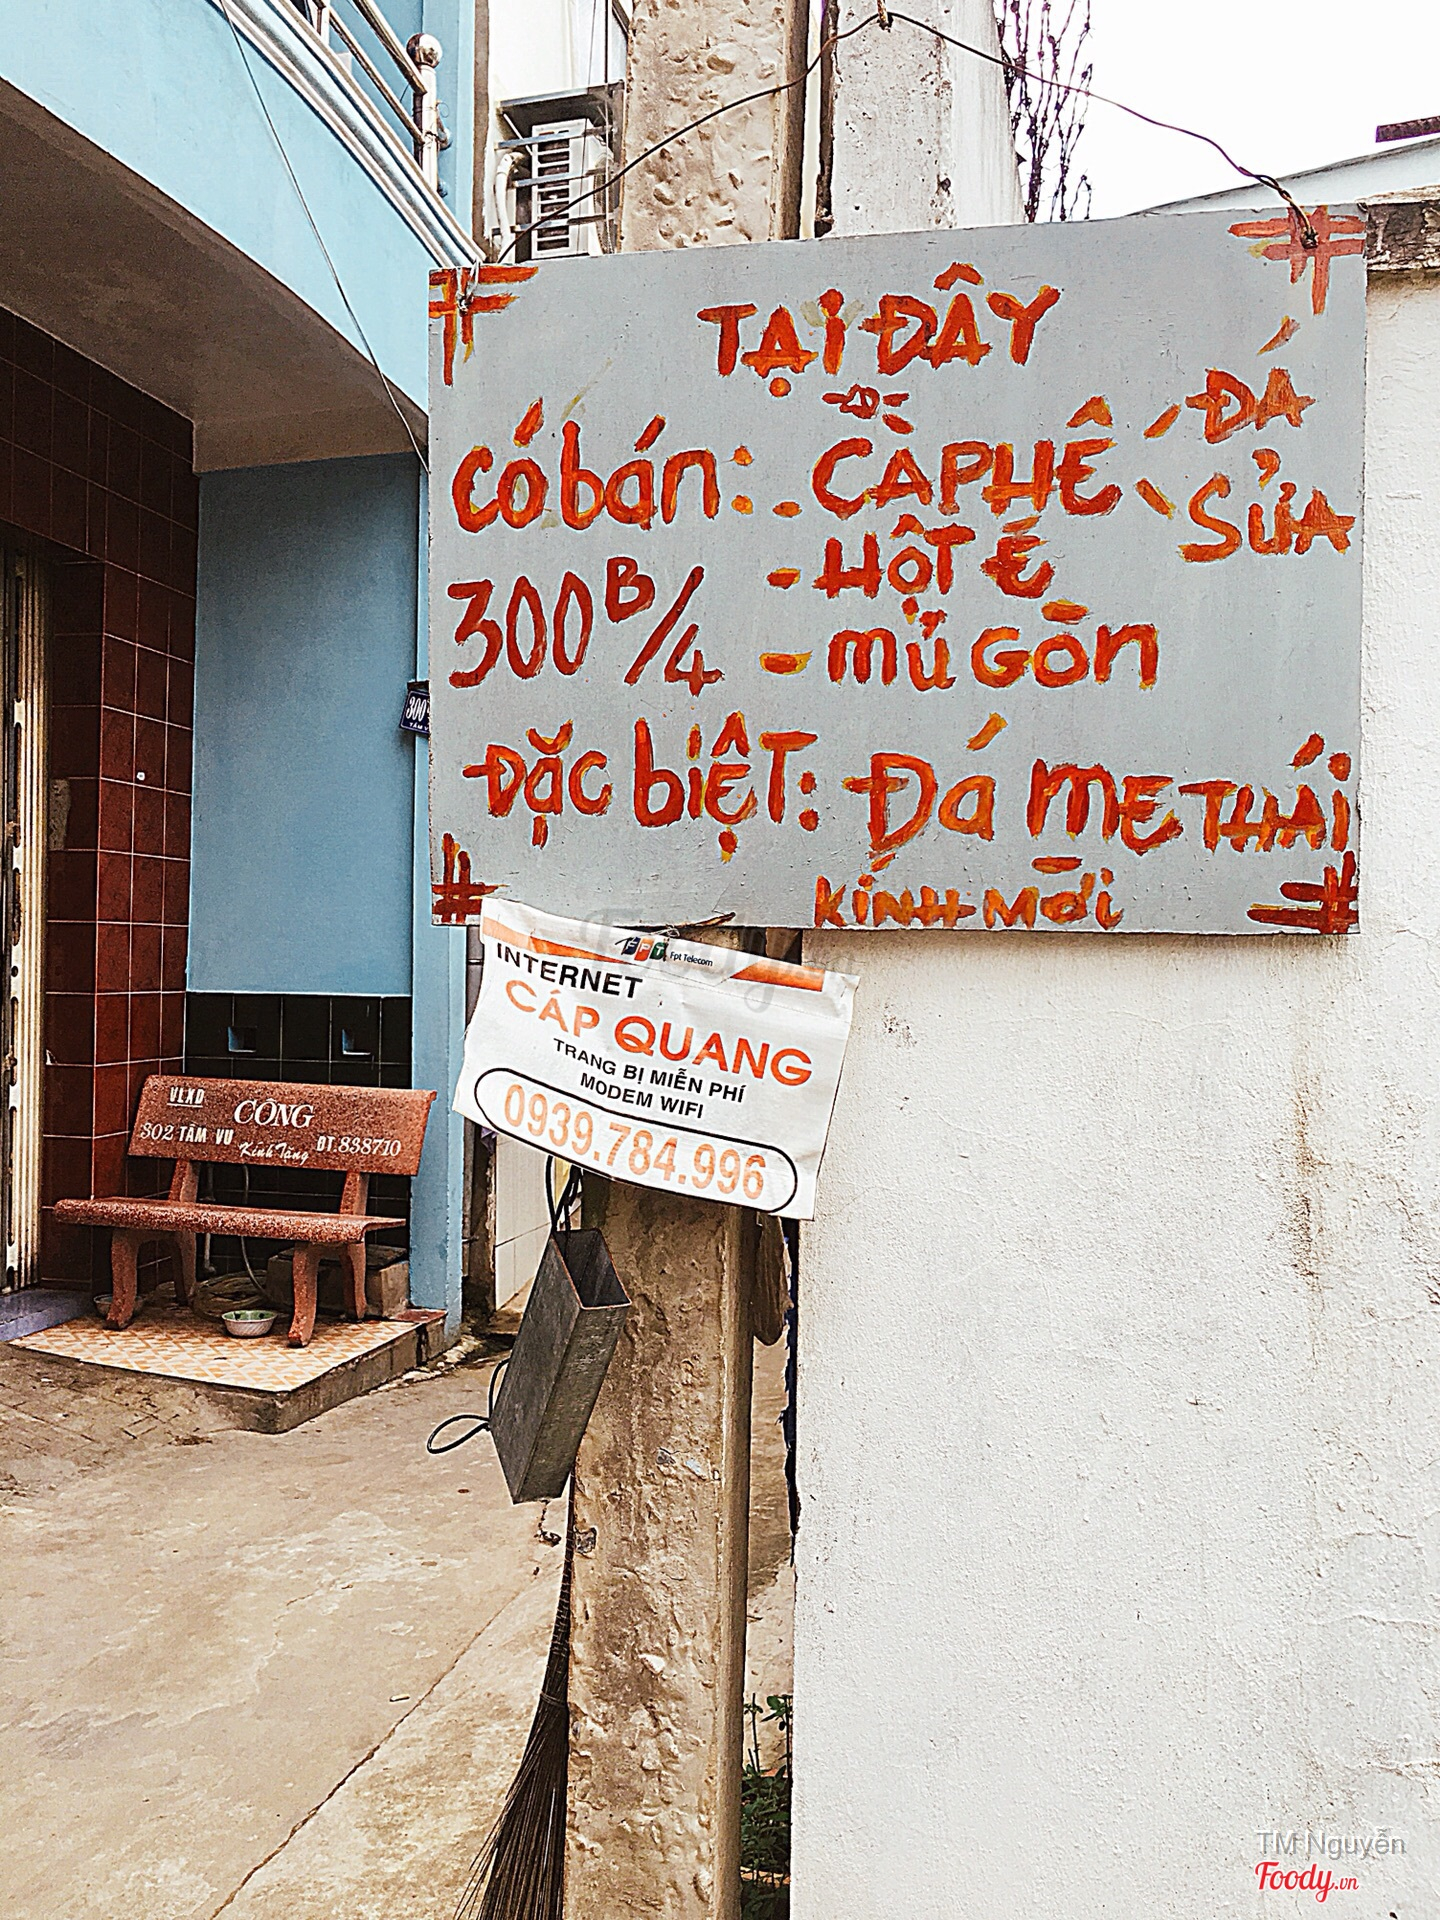 TẠI ĐÂY
CÓ bán: - CÀ PHÊ ĐÁ
SỬA
300B/4 - HỘT É
- MỦ GÒN
ĐẶC biỆT: ĐÁ ME THÁI
KÍNH MỜi
300
FPT Fpt Telecom
INTERNET
CÁP QUANG
TRANG BỊ MIỄN PHÍ
MODEM WIFI
0939.784.996
VLXD CÔNG
302 TẦM VU Kính Tặng ĐT.838710
Foody
TM Nguyễn
Foody.vn